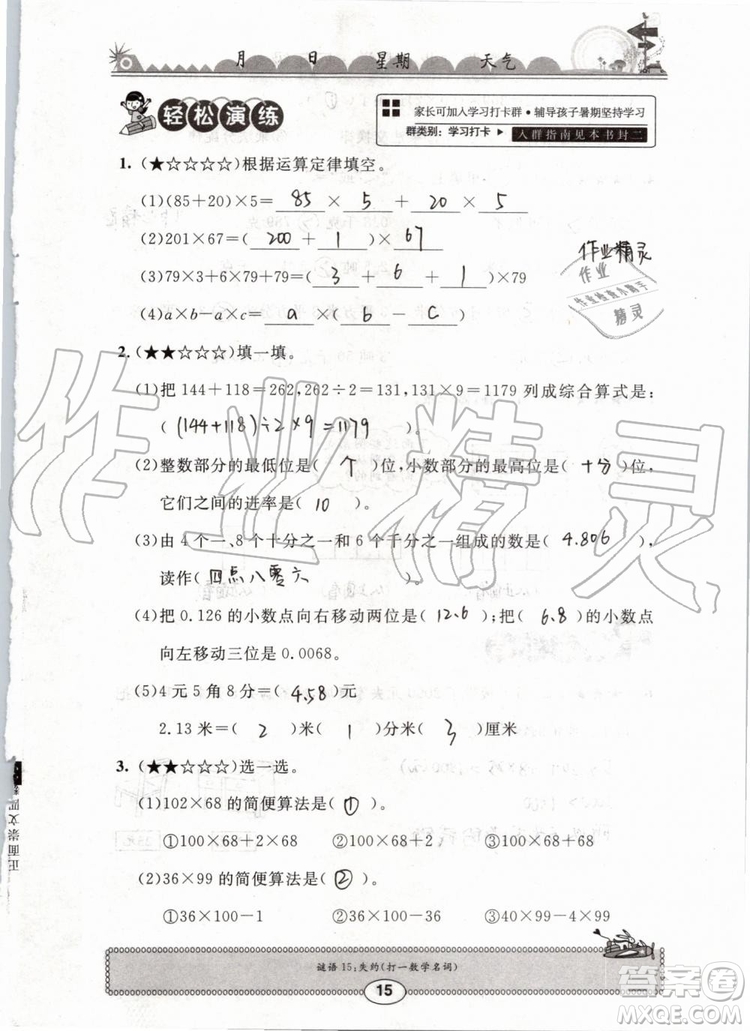 月 日 星期 天气
轻松演练
家长可加入学习打卡群·辅导孩子暑期坚持学习
群类别：学习打卡▶入群指南见本书封二
1. (★☆☆☆☆)根据运算定律填空。
(1)(85+20)×5= 85 × 5 + 20 × 5
(2)201×67=( 200 + 1 )× 67
(3)79×3+6×79+79=( 3 + 6 + 1 )×79
(4)a×b-a×c= a ×( b - c )
作业精灵
作业
作业检查小助手
精灵
2. (★★☆☆☆)填一填。
(1)把 144+118=262,262÷2=131,131×9=1179 列成综合算式是：
( (144+118)÷2×9=1179 )。
(2)整数部分的最低位是( 个 )位,小数部分的最高位是( 十分 )位,
它们之间的进率是( 10 )。
(3)由 4 个一、8 个十分之一和 6 个千分之一组成的数是( 4.806 ),
读作( 四点八零六 )。
(4)把 0.126 的小数点向右移动两位是( 12.6 );把( 6.8 )的小数点
向左移动三位是 0.0068。
(5)4 元 5 角 8 分=( 4.58 )元
2.13 米=( 2 )米( 1 )分米( 3 )厘米
3. (★★☆☆☆)选一选。
(1)102×68 的简便算法是( ① )。
①100×68+2×68 ②100×68+2 ③100×68
(2)36×99 的简便算法是( ② )。
①36×100-1 ②36×100-36 ③40×99-4×99
正面崇文
谜语 15：失约(打一数学名词)
15
作业精灵
答案圈